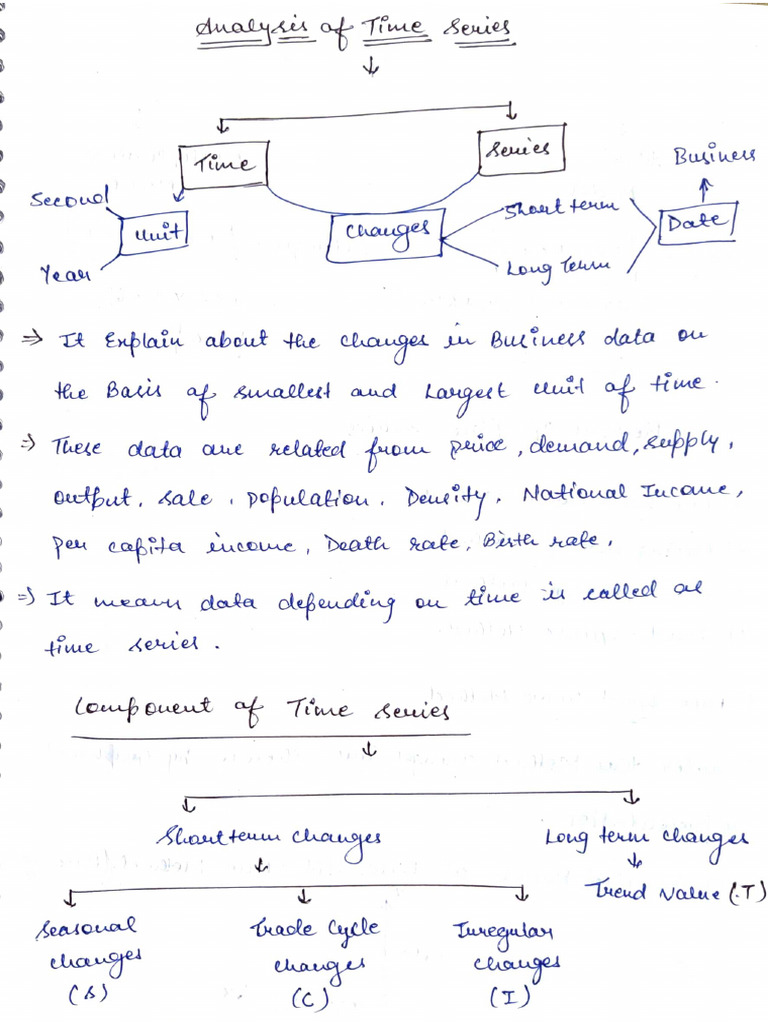 Analysis of Time Series
Time
Series
Business
Second
Unit
Changes
Short term
Date
Year
Long Term
⇒ It Explain about the changes in Business data on
the Basis of smallest and Largest unit of time.
⇒ These data are related from price, demand, supply,
output, sale, population, Density, National Income,
per capita income, Death rate, Birth rate,
⇒ It mean data depending on time is called as
time series.
Component of Time series
Short term changes
Long term changes
Trend Value (T)
Seasonal
changes
(S)
Trade Cycle
changes
(C)
Irregular
changes
(I)